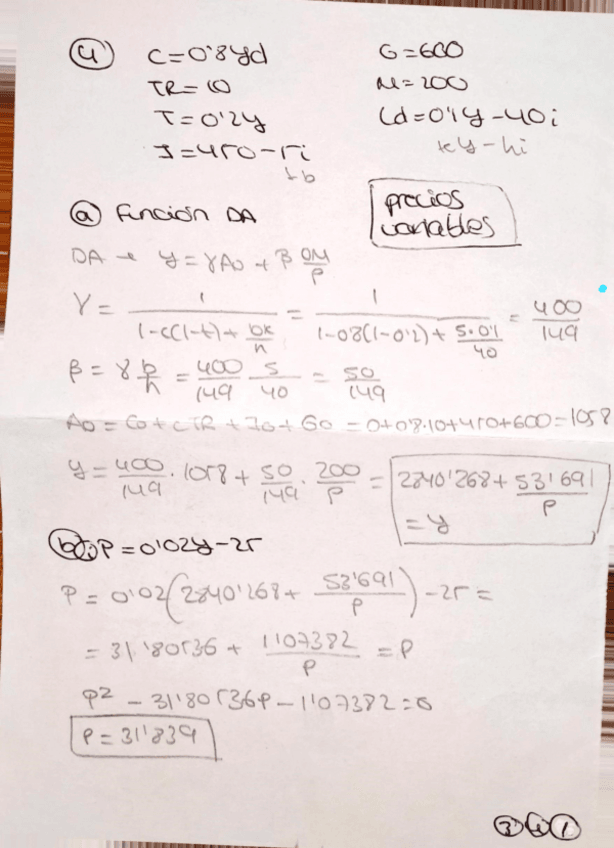 ④ C=0'8yd G=600
TR=10 M=200
T=0'2y Ld=0'1y-40i
I=450-5i ky-hi
↳b
ⓐ Función DA precios variables
DA → y=γA0+β OM/P
γ = 1/(1-c(1-t)+ bk/h) = 1/(1-0'8(1-0'2)+ 5·0'1/40) = 400/149
β = γ b/h = 400/149 5/40 = 50/149
A0 = C0+cTR+I0+G0 = 0+0'8·10+450+600=1058
y = 400/149 · 1058 + 50/149 · 200/P = 2840'268 + 53'691/P
=y
ⓑ P=0'02y-25
P = 0'02(2840'268+ 53'691/P)-25 =
= 31'80536 + 1'07382/P = P
P² - 31'80536P - 1'07382=0
P=31'839
③④①